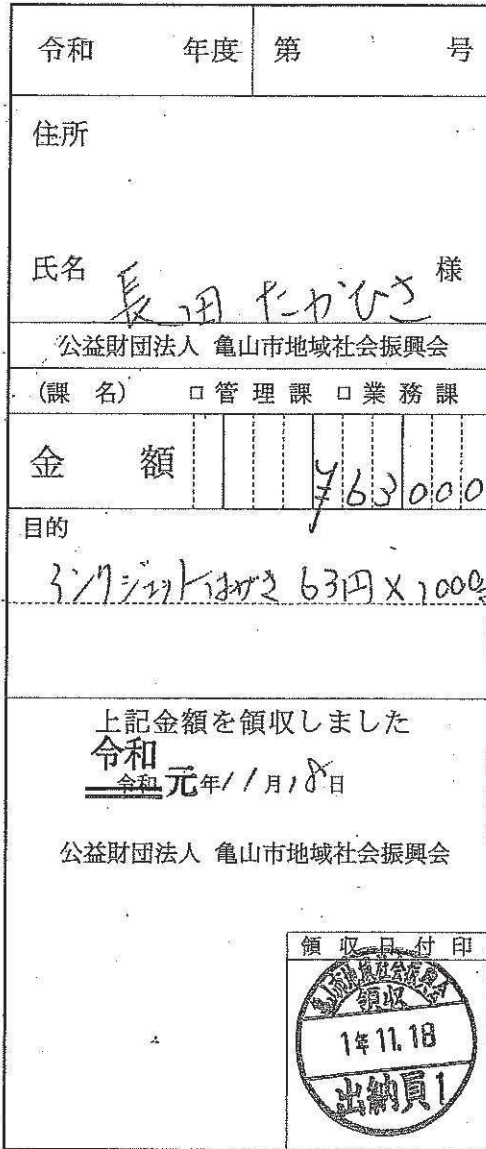 令和 年度 第 号
住所
氏名 長田 たかひさ 様
公益財団法人 亀山市地域社会振興会
(課 名) ロ管理課 ロ業務課
金 額 ¥63000
目的
インクジェットはがき 63円×1000
上記金額を領収しました
令和
令和 元年11月18日
公益財団法人 亀山市地域社会振興会
領収日付印
亀山市地域社会振興会
領収
1年11.18
出納員1